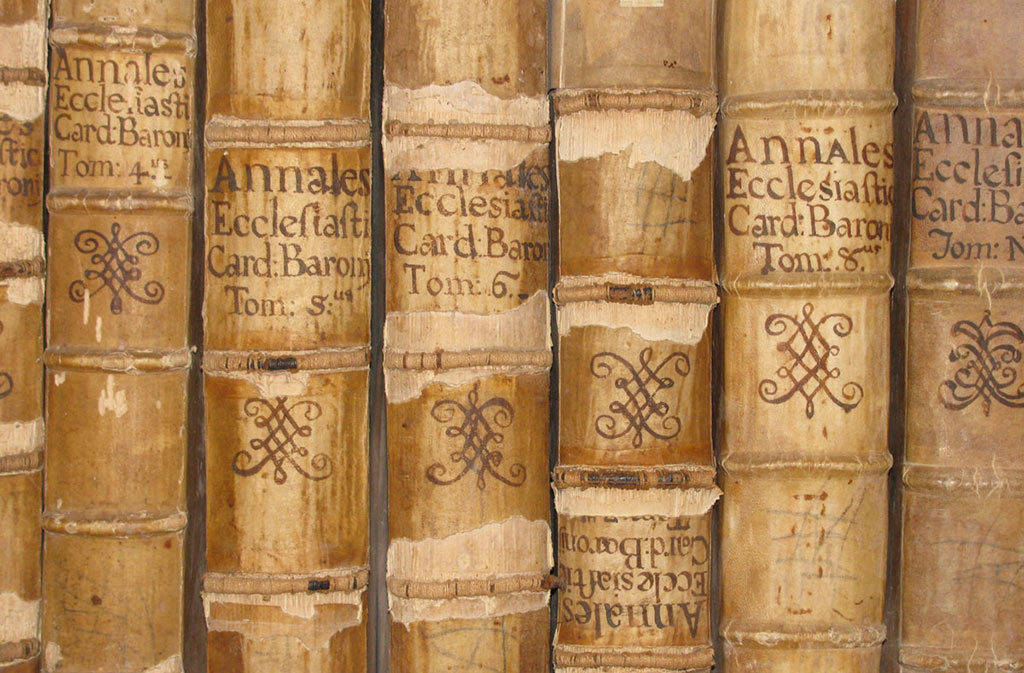 stic
ronj
Annales
Ecclesiasti
Card: Baronj
Tom: 4.us
Annales
Ecclesiasti
Card: Baronj
Tom: 5.us
Annales
Ecclesiasti
Card: Baron
Tom: 6.
Annales
Ecclesiastic
Card: Baronj
Annales
Ecclesiastic
Card: Baron
Tom: 8.us
Anna
Ecclesi
Card: Ba
Tom: N